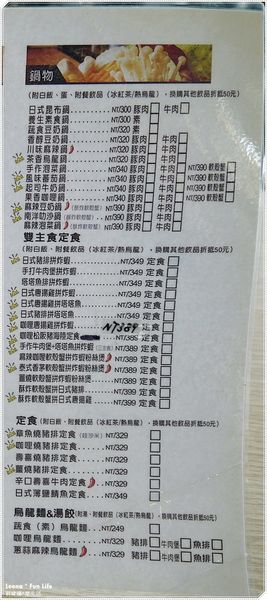 鍋物
(附白飯、蛋、附餐飲品(冰紅茶/熱烏龍),換購其他飲品折抵50元)
日式昆布鍋 NT/300 豚肉 牛肉
養生素食鍋 NT/300 素
蔬食豆奶鍋 NT/320 素
香醇豆奶鍋 NT/320 豚肉 牛肉
川味麻辣鍋 NT/320 豚肉 牛肉
茶香烏龍鍋 NT/320 豚肉 牛肉
手作泡菜鍋 NT/320 豚肉 牛肉 NT/390 軟殼蟹
風味蕃茄鍋 NT/320 豚肉 牛肉 NT/390 軟殼蟹
起司牛奶鍋 NT/320 豚肉 牛肉 NT/390 軟殼蟹
果香咖哩鍋 NT/320 豚肉 牛肉 NT/390 軟殼蟹
麻辣豆奶鍋 (酥炸軟殼蟹) NT/390 豚肉 牛肉
南洋叻沙鍋 (酥炸軟殼蟹) NT/390 豚肉 牛肉
麻辣泡菜鍋 (酥炸軟殼蟹) NT/390 豚肉 牛肉
雙主食定食
(附白飯、附餐飲品(冰紅茶/熱烏龍),換購其他飲品折抵50元)
日式豬排拼炸蝦 NT/349 定食
手打牛肉堡拼炸蝦 NT/349 定食
塔塔魚排拼炸蝦 NT/349 定食
日式唐揚雞拼炸蝦 NT/349 定食
日式唐揚雞拼塔塔魚 NT/349 定食
日式豬排拼塔塔魚 NT/349 定食
咖哩唐揚雞拼炸蝦 NT/389 定食
咖哩松阪豬海陸定食 NT/389 定食
手作牛肉堡+塔塔魚拼炸蝦 NT/389 定食
麻辣咖哩軟殼蟹拼炸蝦粉絲煲 NT/399 定食
泰式香茅軟殼蟹拼炸蝦粉絲煲 NT/399 定食
薑燒軟殼蟹拼炸蝦粉絲煲 NT/399 定食
酥炸軟殼蟹拼日式豬排 NT/399 定食
酥炸軟殼蟹拼日式唐揚雞 NT/399 定食
定食
(附白飯、附餐飲品(冰紅茶/熱烏龍),換購其他飲品折抵50元)
章魚燒豬排定食 NT/329
咖哩燒豬排定食 NT/329
壽喜燒豬排定食 NT/329
薑燒豬排定食 NT/329
辛口壽喜牛肉定食 NT/329
日式薄鹽鯖魚定食 NT/329
烏龍麵&湯餃
蔬食(素)烏龍麵 NT/249
咖哩烏龍麵 NT/329 豬排 牛肉堡 魚排
蔥蒜麻辣烏龍麵 NT/329 豬排 牛肉堡 魚排
Leena~Fun Life